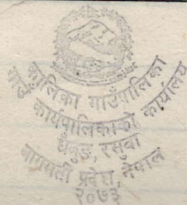 कालिका गाउँपालिका
गाउँ कार्यपालिकाको कार्यालय
धैबुङ्ग, रसुवा
बागमती प्रदेश, नेपाल
२०७३